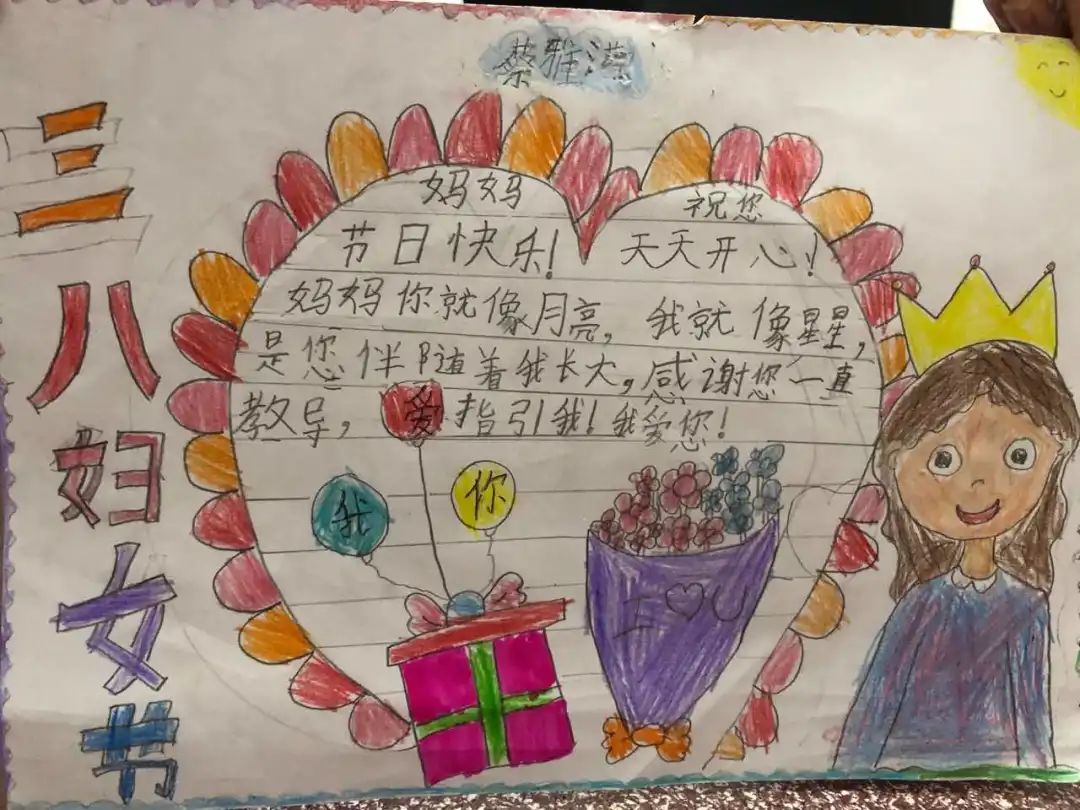 蔡雅滢
三八妇女节
妈妈 祝您
节日快乐! 天天开心!
妈妈你就像月亮,我就像星星,
是您伴随着我长大,感谢您一直
教导,爱指引我!我爱您!
我 你
I♡U